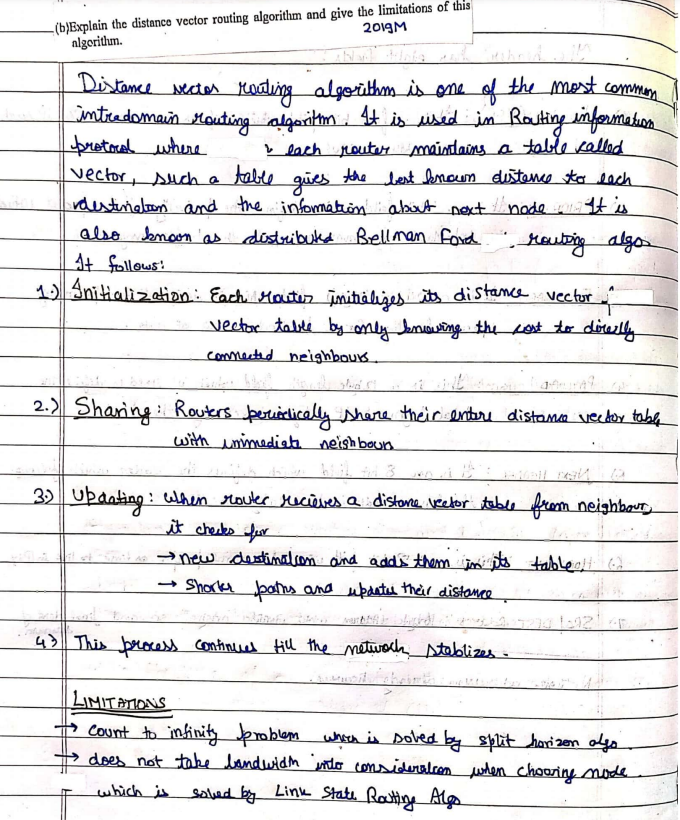 (b)Explain the distance vector routing algorithm and give the limitations of this
algorithm.
2019M
Distance vector routing algorithm is one of the most common
intradomain routing algorithm. It is used in Routing information
protocol where each router maintains a table called
vector, such a table gives the best known distance to each
destination and the information about next node. It is
also known as distributed Bellman Ford routing algo
It follows:
1.) Initialization: Each router initializes its distance vector
vector table by only knowing the cost to directly
connected neighbours.
2.) Sharing: Routers periodically share their entire distance vector table
with immediate neighbours
3.) Updating: When router recieves a distance vector table from neighbour,
it checks for
→ new destination and adds them in its table.
→ Shorter paths and updates their distance.
4.) This process continues till the network stablizes.
LIMITATIONS
→ Count to infinity problem which is solved by split horizon algo.
→ does not take bandwidth into consideration when choosing node.
which is solved by Link State Routing Algo